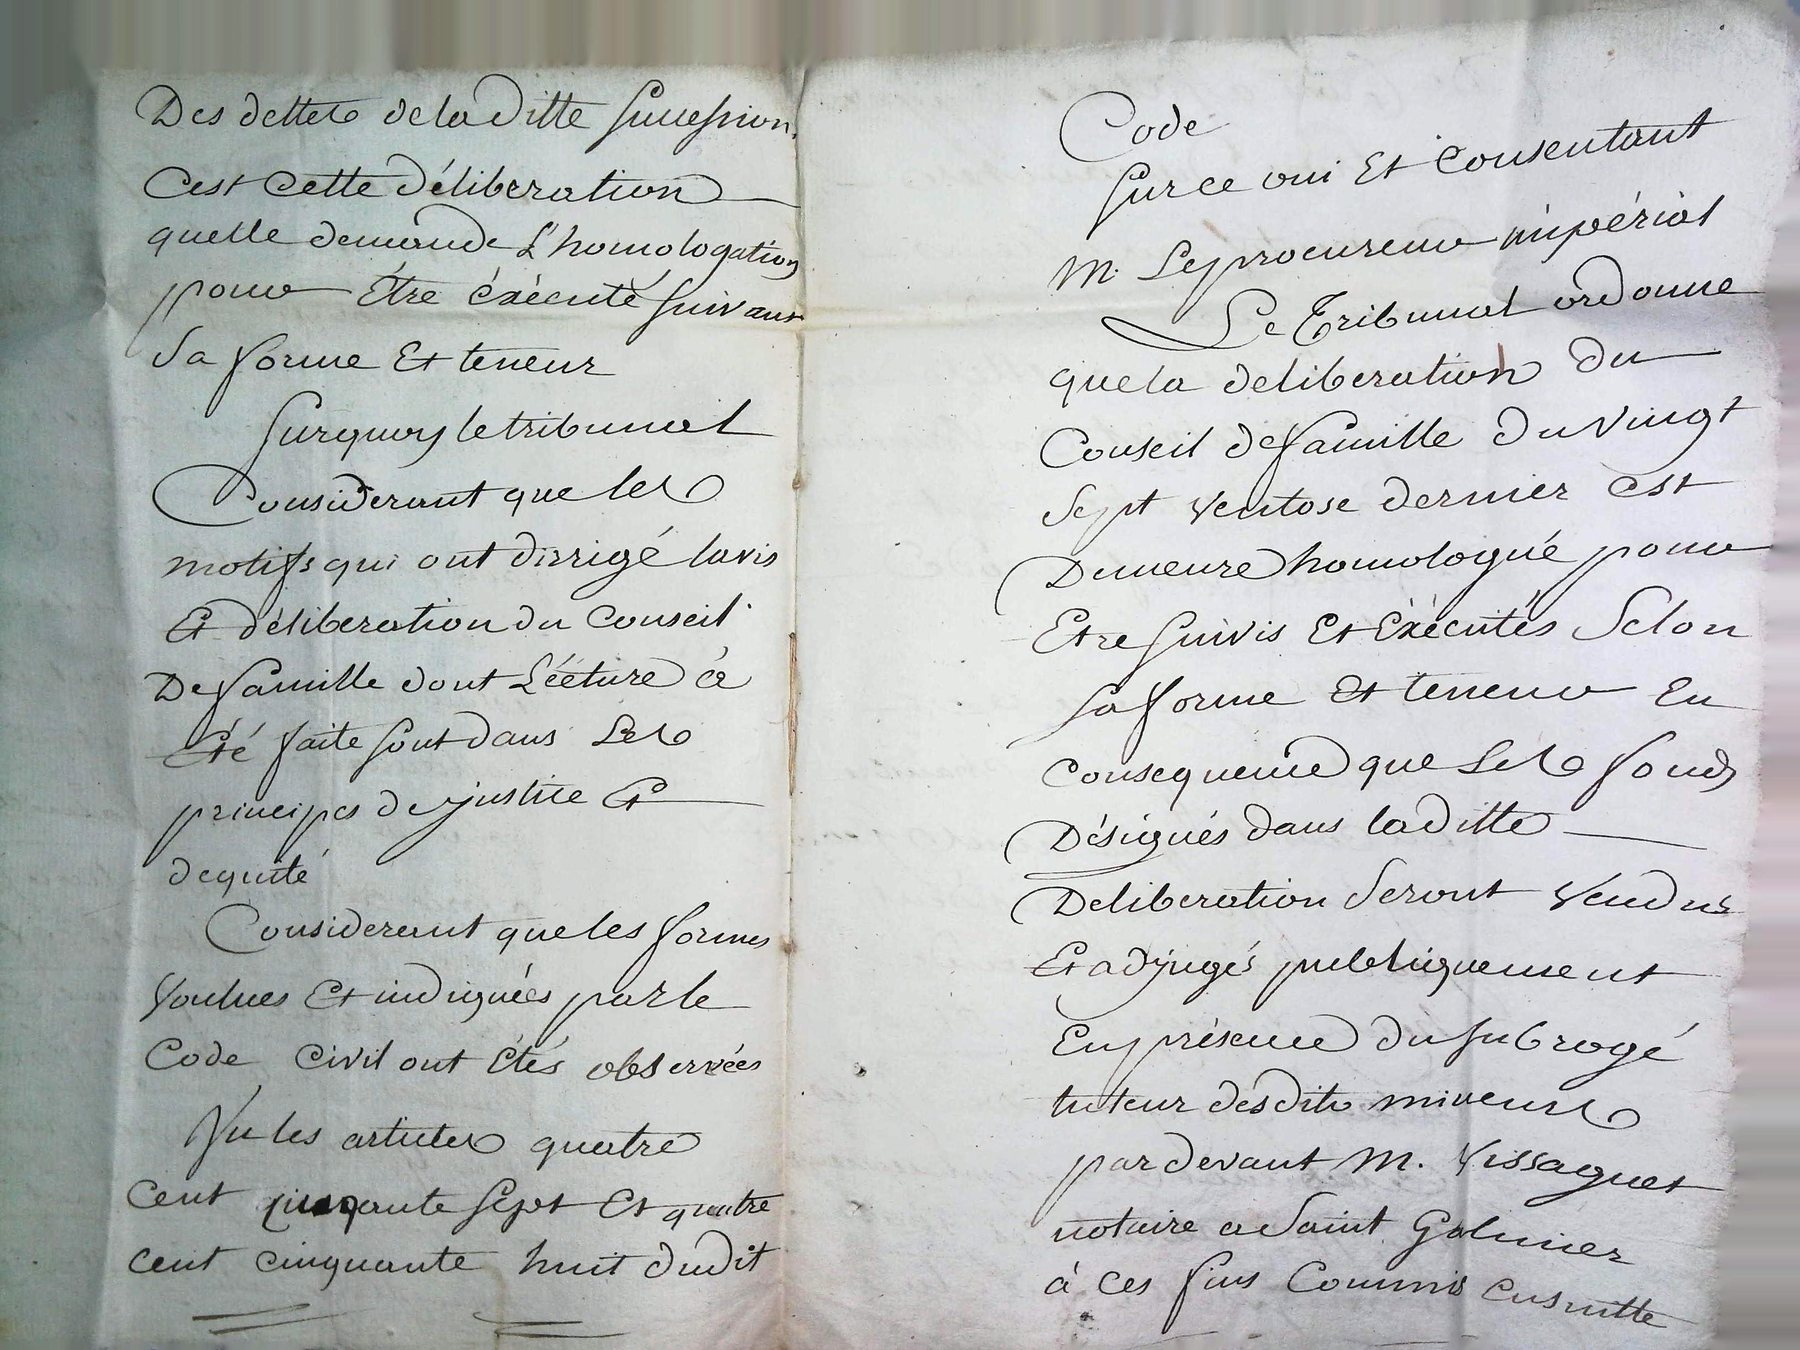 Des dettes de la ditte Succession.
Cest cette déliberation
quelle demande L'homologation
pour Être éxécuté Suivant
Sa forme Et teneur
Surquoy le tribunal
Considerant que les
motifs qui ont dirrigé lavis
Et déliberation du Conseil
De famille dont Lécture à
Eté faite Sont dans Les
principes de justice Et
dequité
Considerant que les formes
Voulues Et indiquées par le
Code Civil ont Étés observées
Vu les articles quatre
Cent cinquante Sept Et quatre
cent cinquante huit dudit
Code
Sur ce oui Et Consentant
M. Le procureur impérial
Le Tribunal ordonne
que la deliberation du
Conseil de famille du Vingt
Sept Ventose dernier est
Demeure homologué pour
Etre Suivis Et Éxécutés Selon
Sa forme Et teneur En
Consequence que Les fonds
Désignés dans la ditte
Deliberation Seront Vendus
Et adjugés publiquement
En présence du Subrogé
tuteur desdits mineurs
par devant M. Vissaguet
notaire a Saint Galmier
à Ces fins Commis Ensuitte